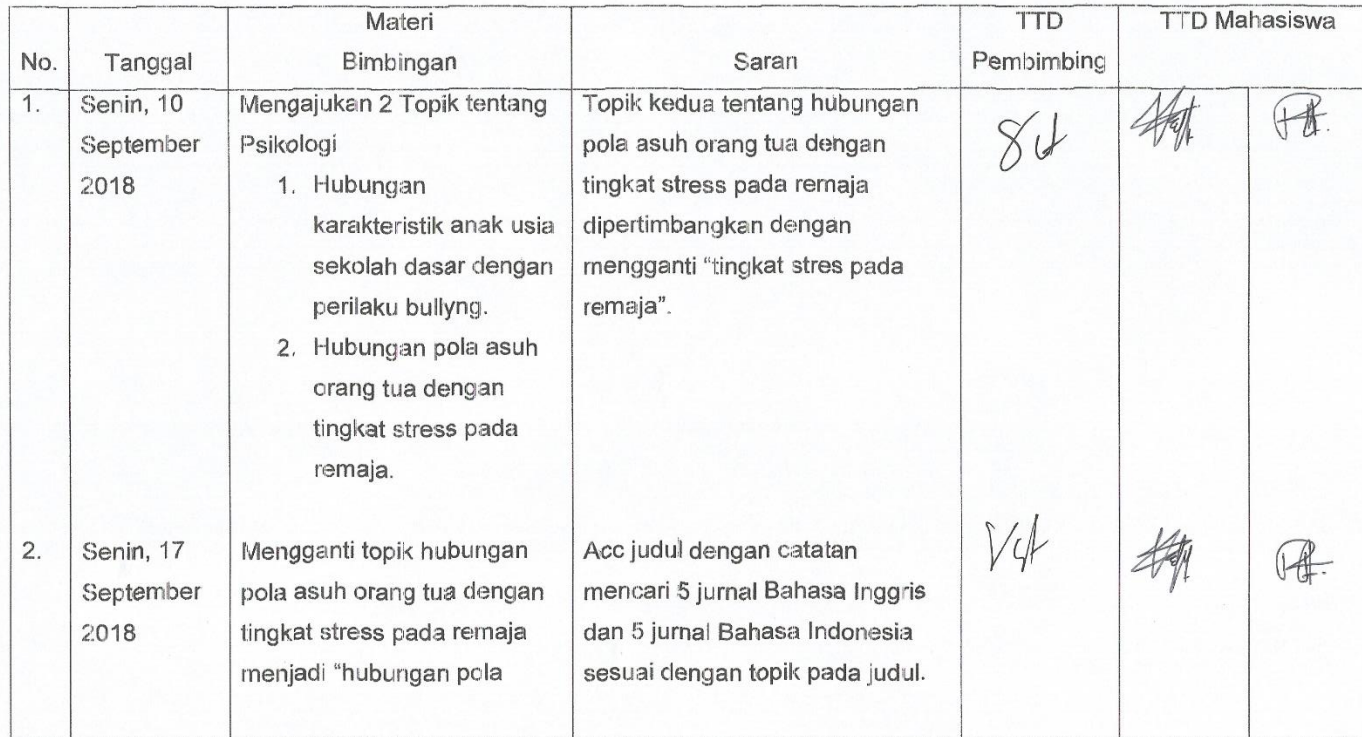 No.
Tanggal
Materi
Bimbingan
Saran
TTD
Pembimbing
TTD Mahasiswa
1.
Senin, 10
September
2018
Mengajukan 2 Topik tentang
Psikologi
1. Hubungan
karakteristik anak usia
sekolah dasar dengan
perilaku bullyng.
2. Hubungan pola asuh
orang tua dengan
tingkat stress pada
remaja.
Topik kedua tentang hubungan
pola asuh orang tua dengan
tingkat stress pada remaja
dipertimbangkan dengan
mengganti "tingkat stres pada
remaja".
2.
Senin, 17
September
2018
Mengganti topik hubungan
pola asuh orang tua dengan
tingkat stress pada remaja
menjadi "hubungan pola
Acc judul dengan catatan
mencari 5 jurnal Bahasa Inggris
dan 5 jurnal Bahasa Indonesia
sesuai dengan topik pada judul.